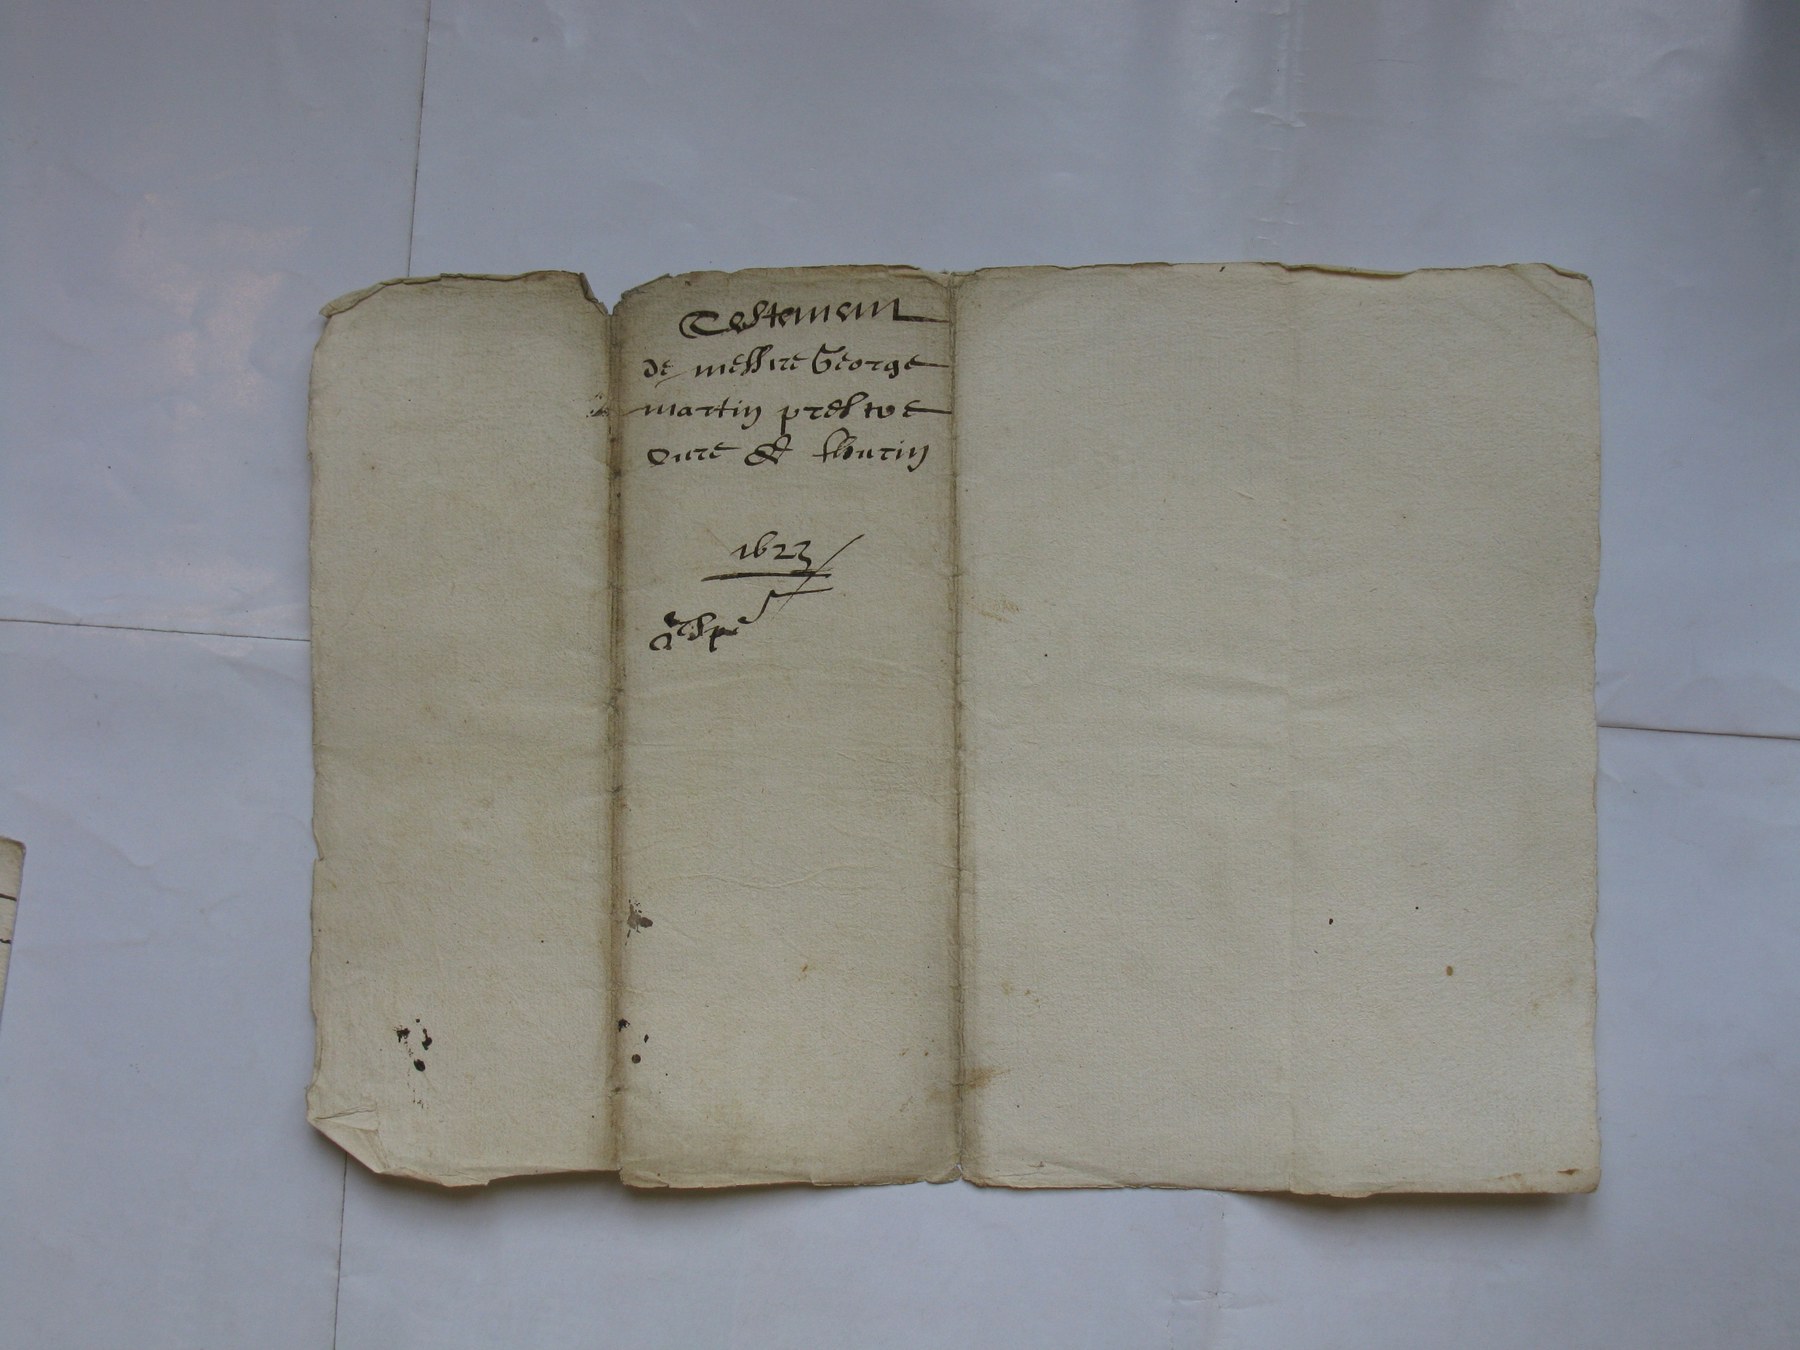 Testament
de messire George
martin prestre
cure de flourin
1623